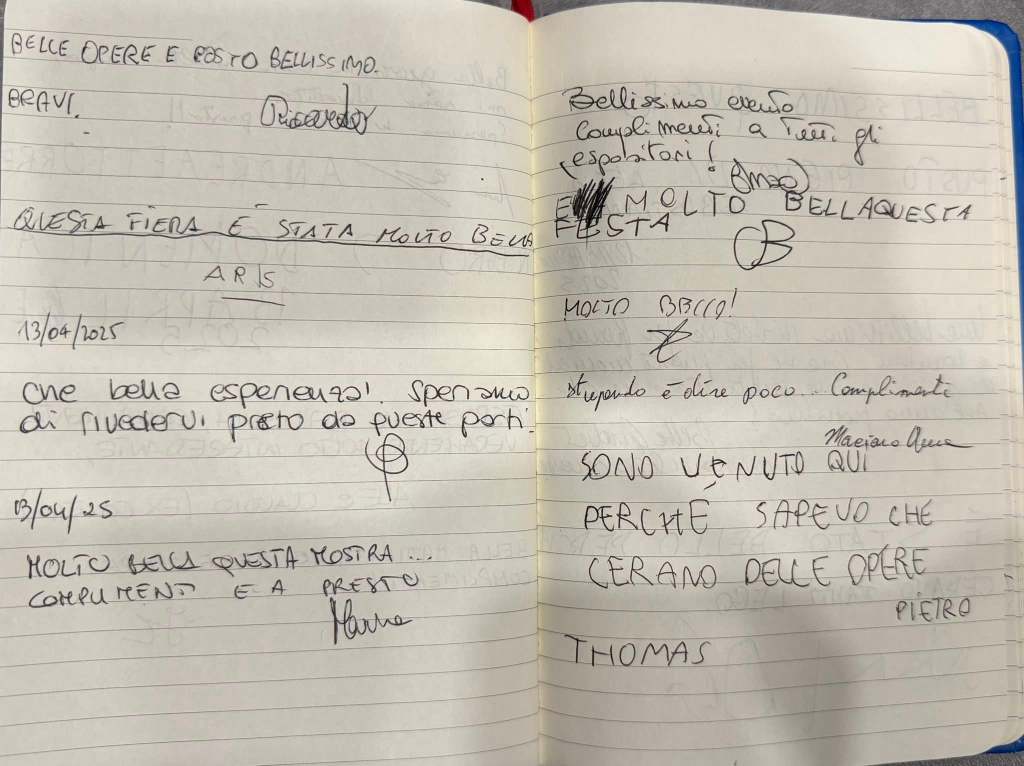 BELLE OPERE E POSTO BELLISSIMO.
BRAVI.
QUESTA FIERA È STATA MOLTO BELLA
ARIS
13/04/2025
Che bella esperienza! Speriamo
di rivedervi presto da queste parti!
13/04/25
MOLTO BELLA QUESTA MOSTRA...
COMPLIMENTI E A PRESTO
Bellissimo evento
Complimenti a tutti gli
espositori!
E MOLTO BELLA QUESTA
FESTA
B
MOLTO BELLO!
Stupendo è dire poco... Complimenti
SONO VENUTO QUI
PERCHÉ SAPEVO CHE
CERANO DELLE OPERE
PIETRO
THOMAS